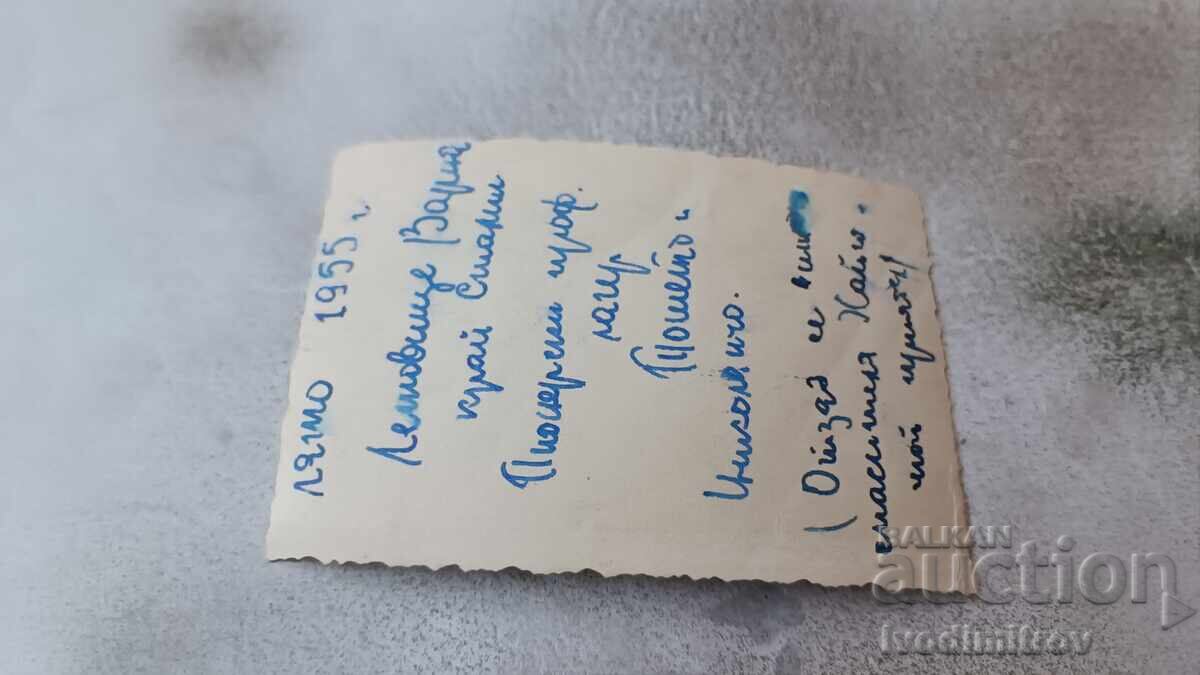 лято 1955 г.
Летовище Варна
край Сталин
Пионерски проф.
лагер
Тошето и
Цписолничо.
( Отзад се
спасителя Хайо.
мой приятел
BALKAN
auction
Ivodimitrov